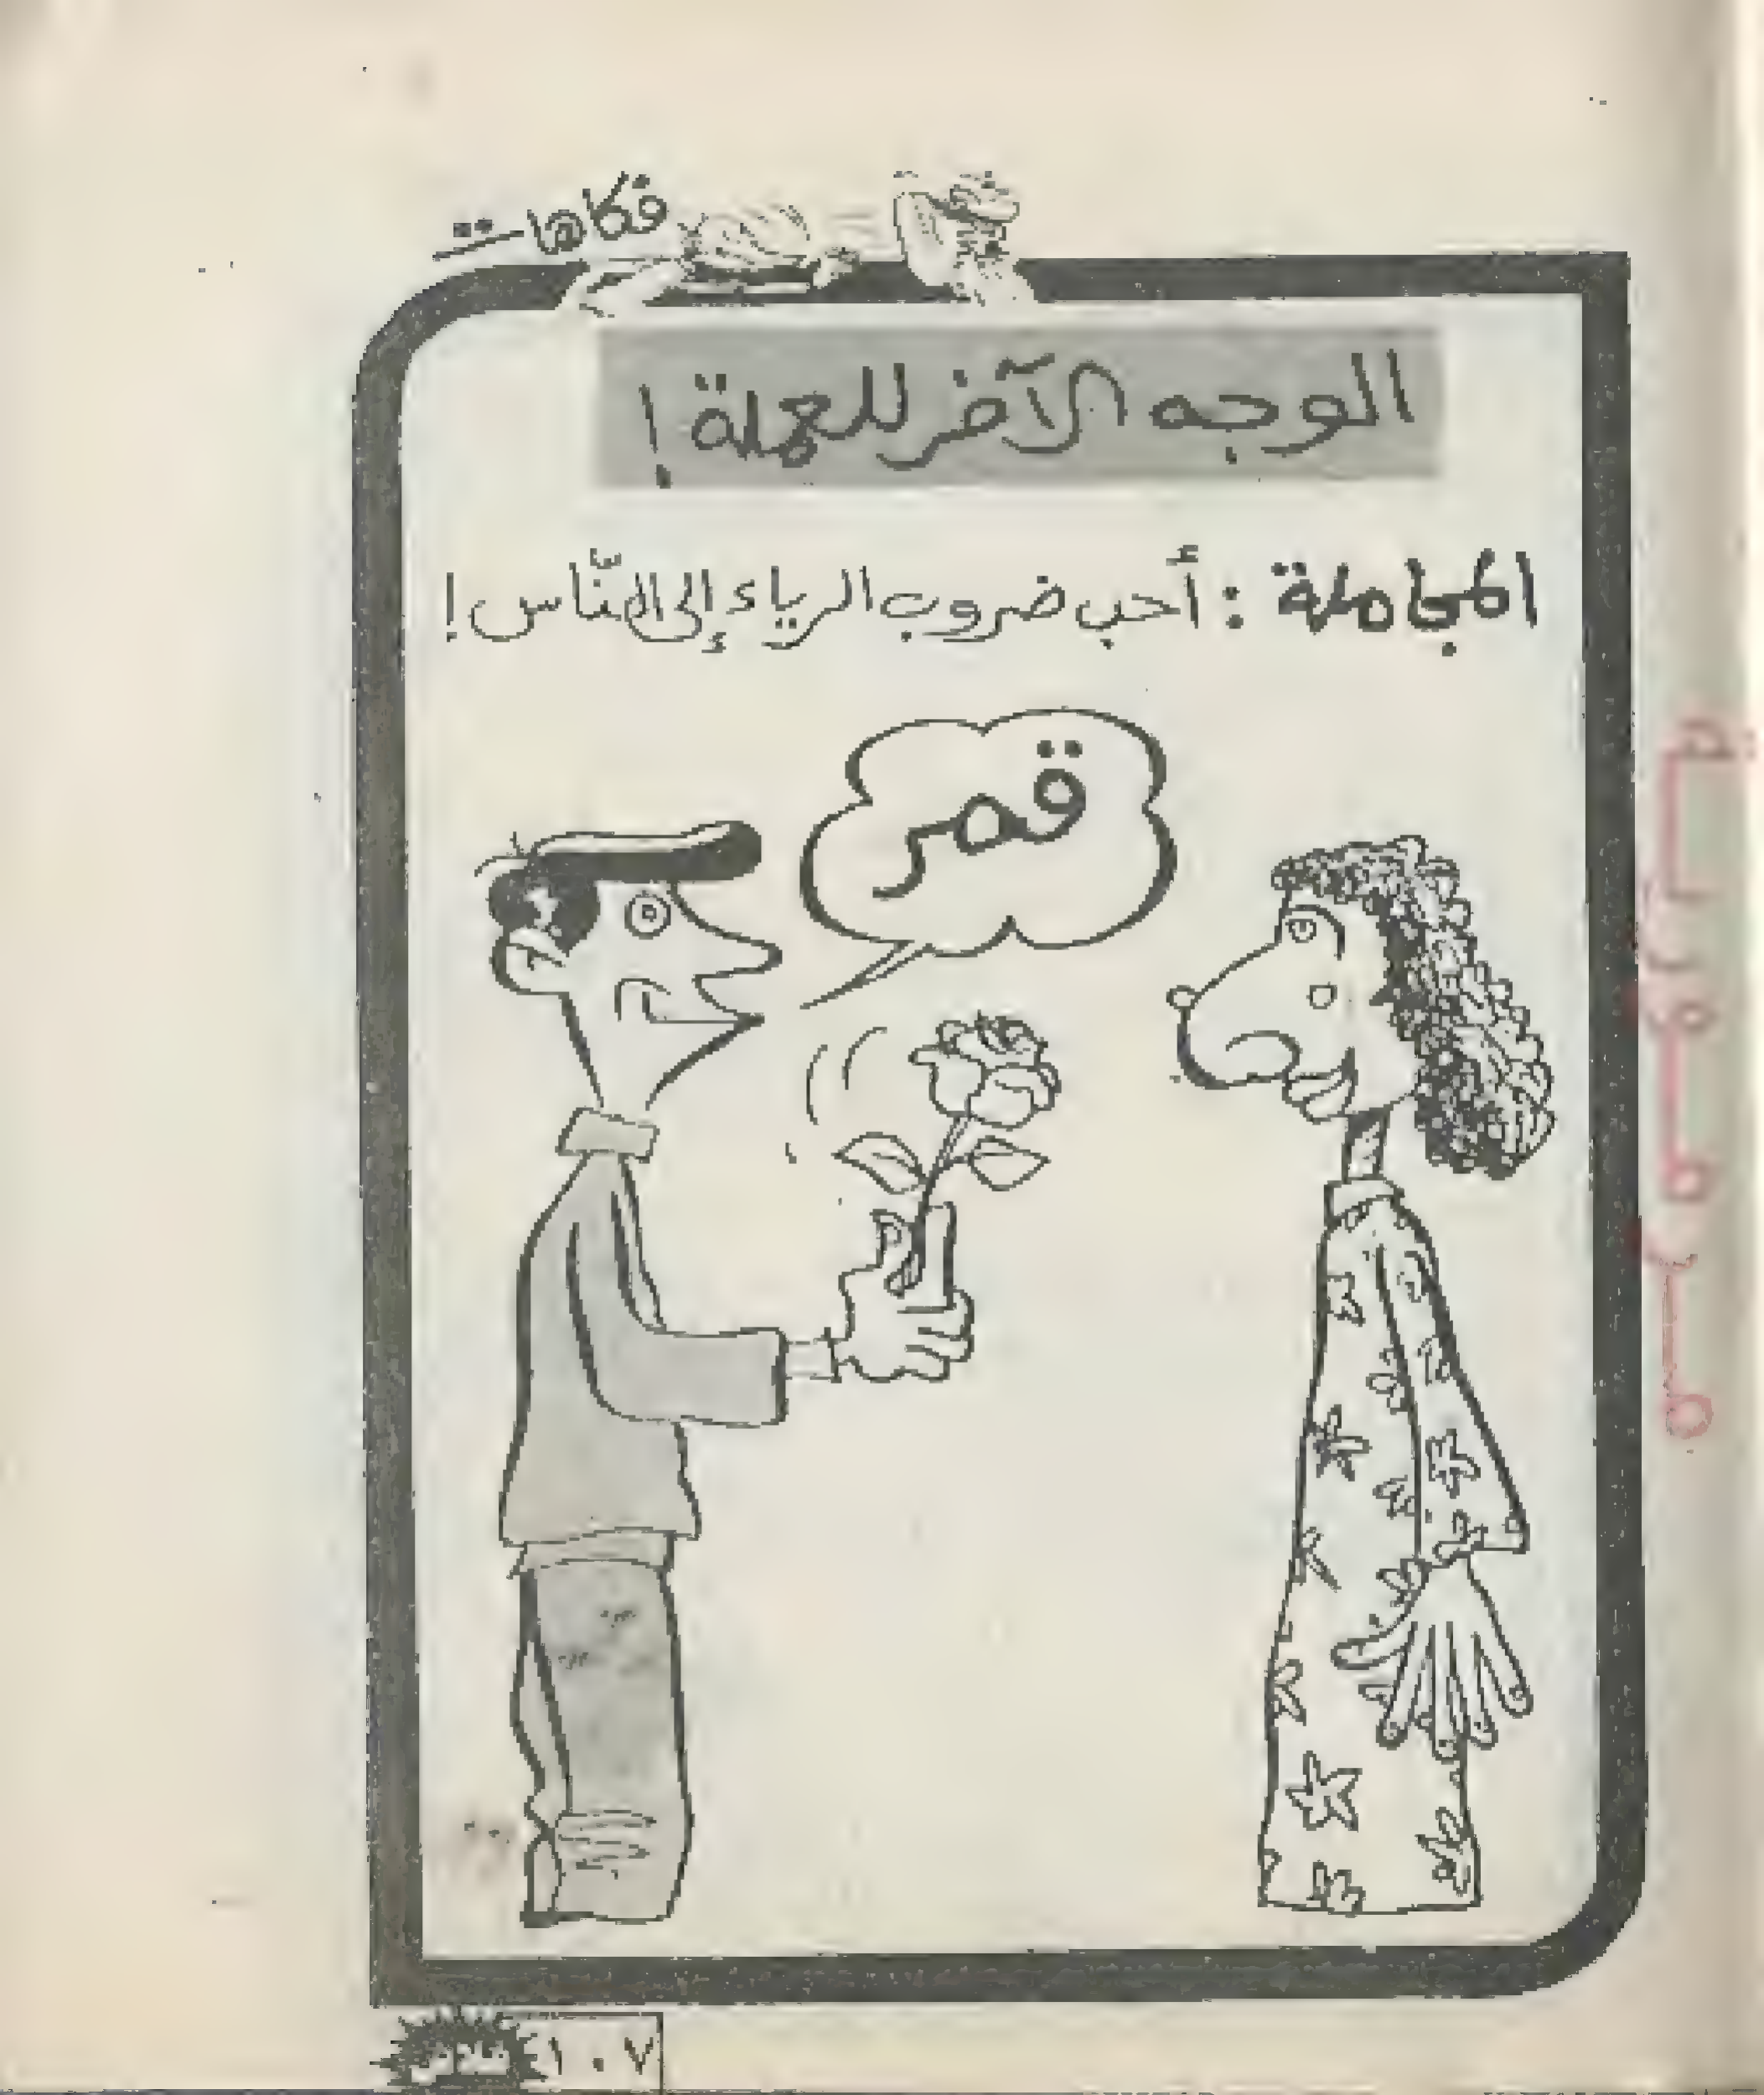 فكاهات
الوجه الآخر للعملة !
المجاملة : أحب ضروب الرياء إلى النّاس !
قمر
١٠٧